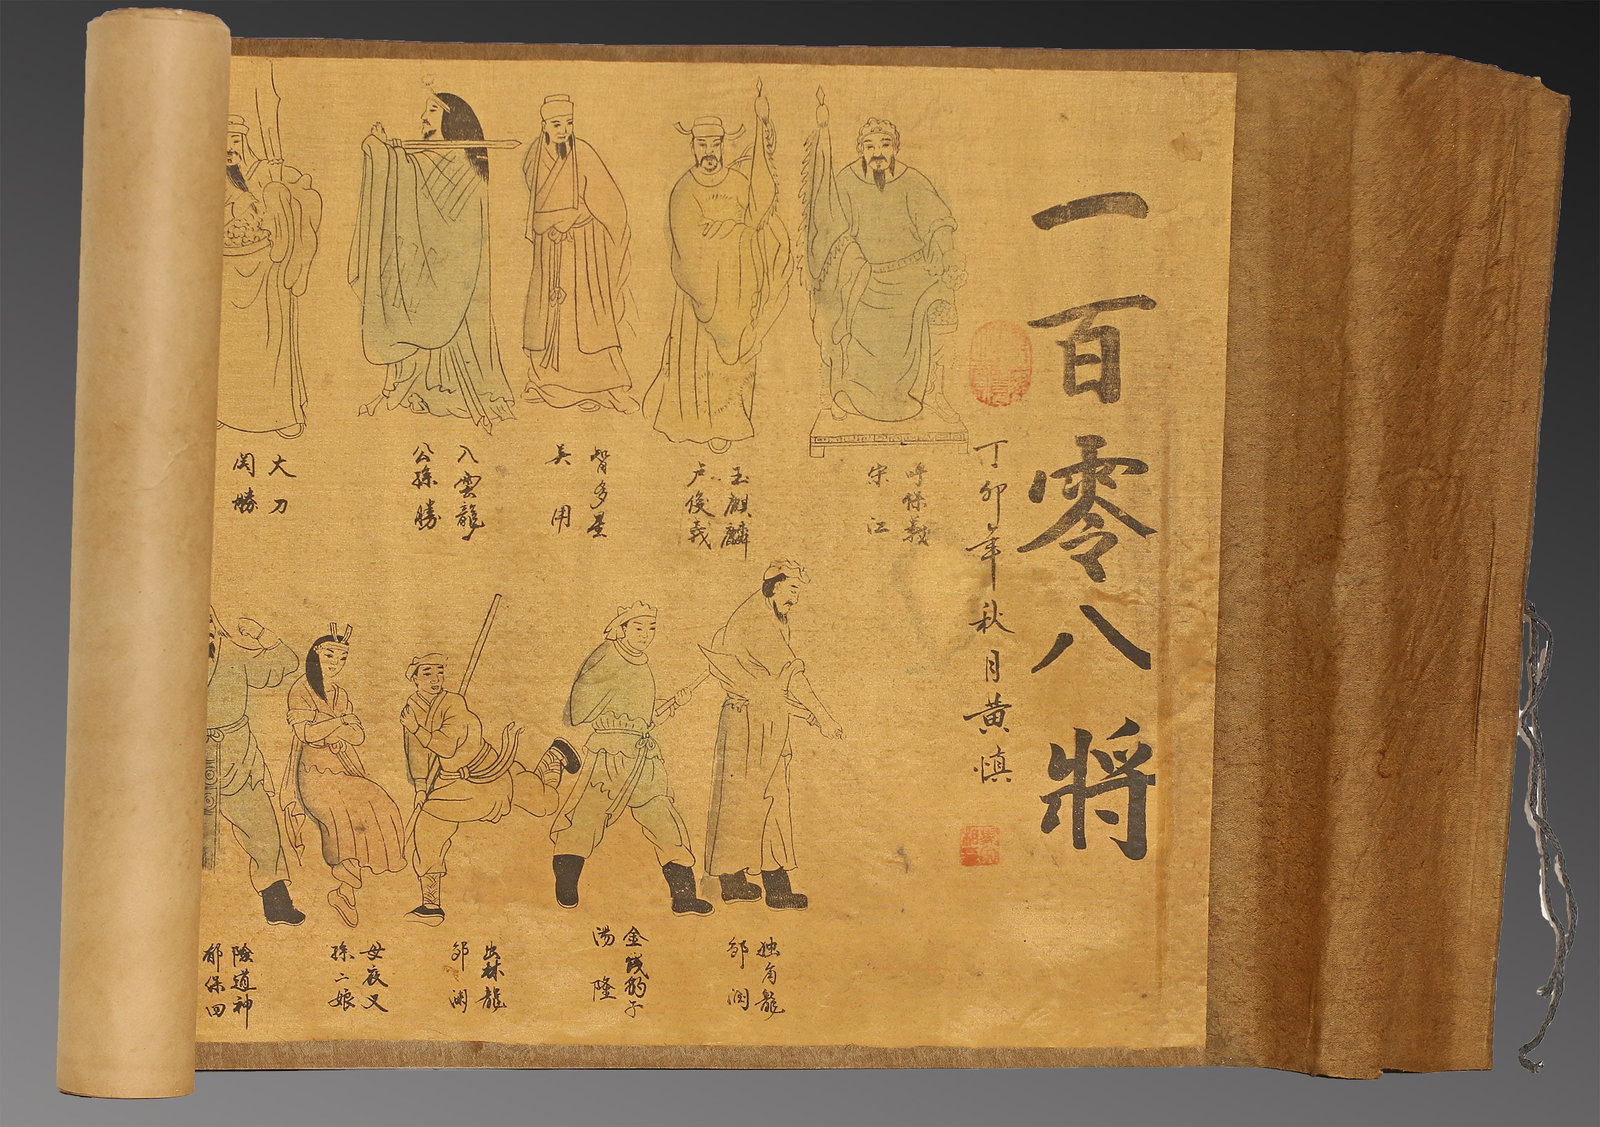 一百零八將
丁卯年秋月黃慎
呼保義
宋江
玉麒麟
卢俊義
智多星
吴用
入雲龍
公孫勝
大刀
関勝
独角龍
邹润
金錢豹子
湯隆
出林龍
邹渊
母夜叉
孫二娘
險道神
郁保四